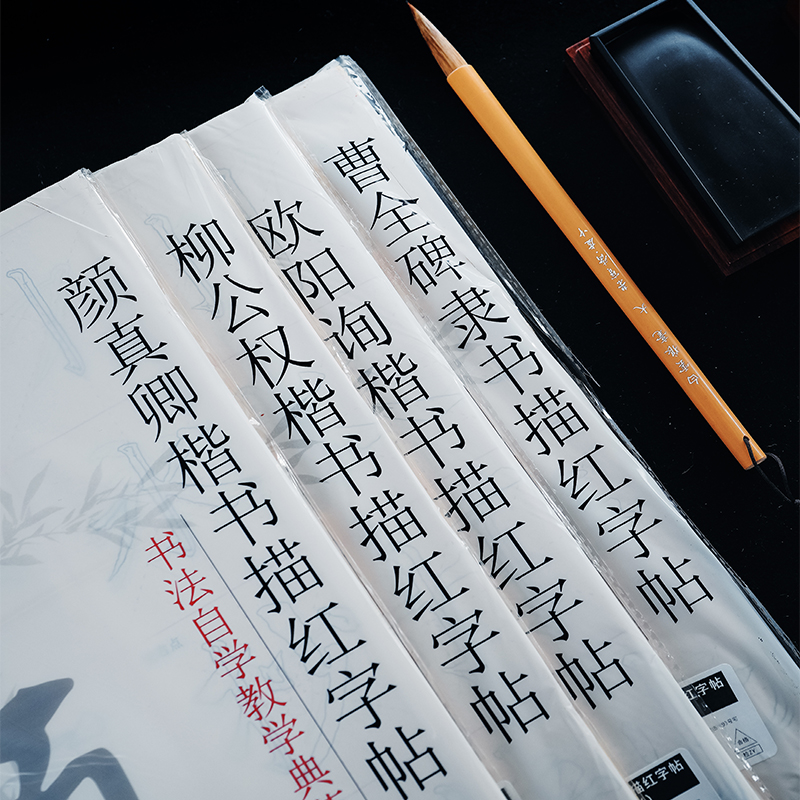 颜真卿楷书描红字帖
书法自学教学典
柳公权楷书描红字帖
欧阳询楷书描红字帖
曹全碑隶书描红字帖
描红字帖
红字帖
合格